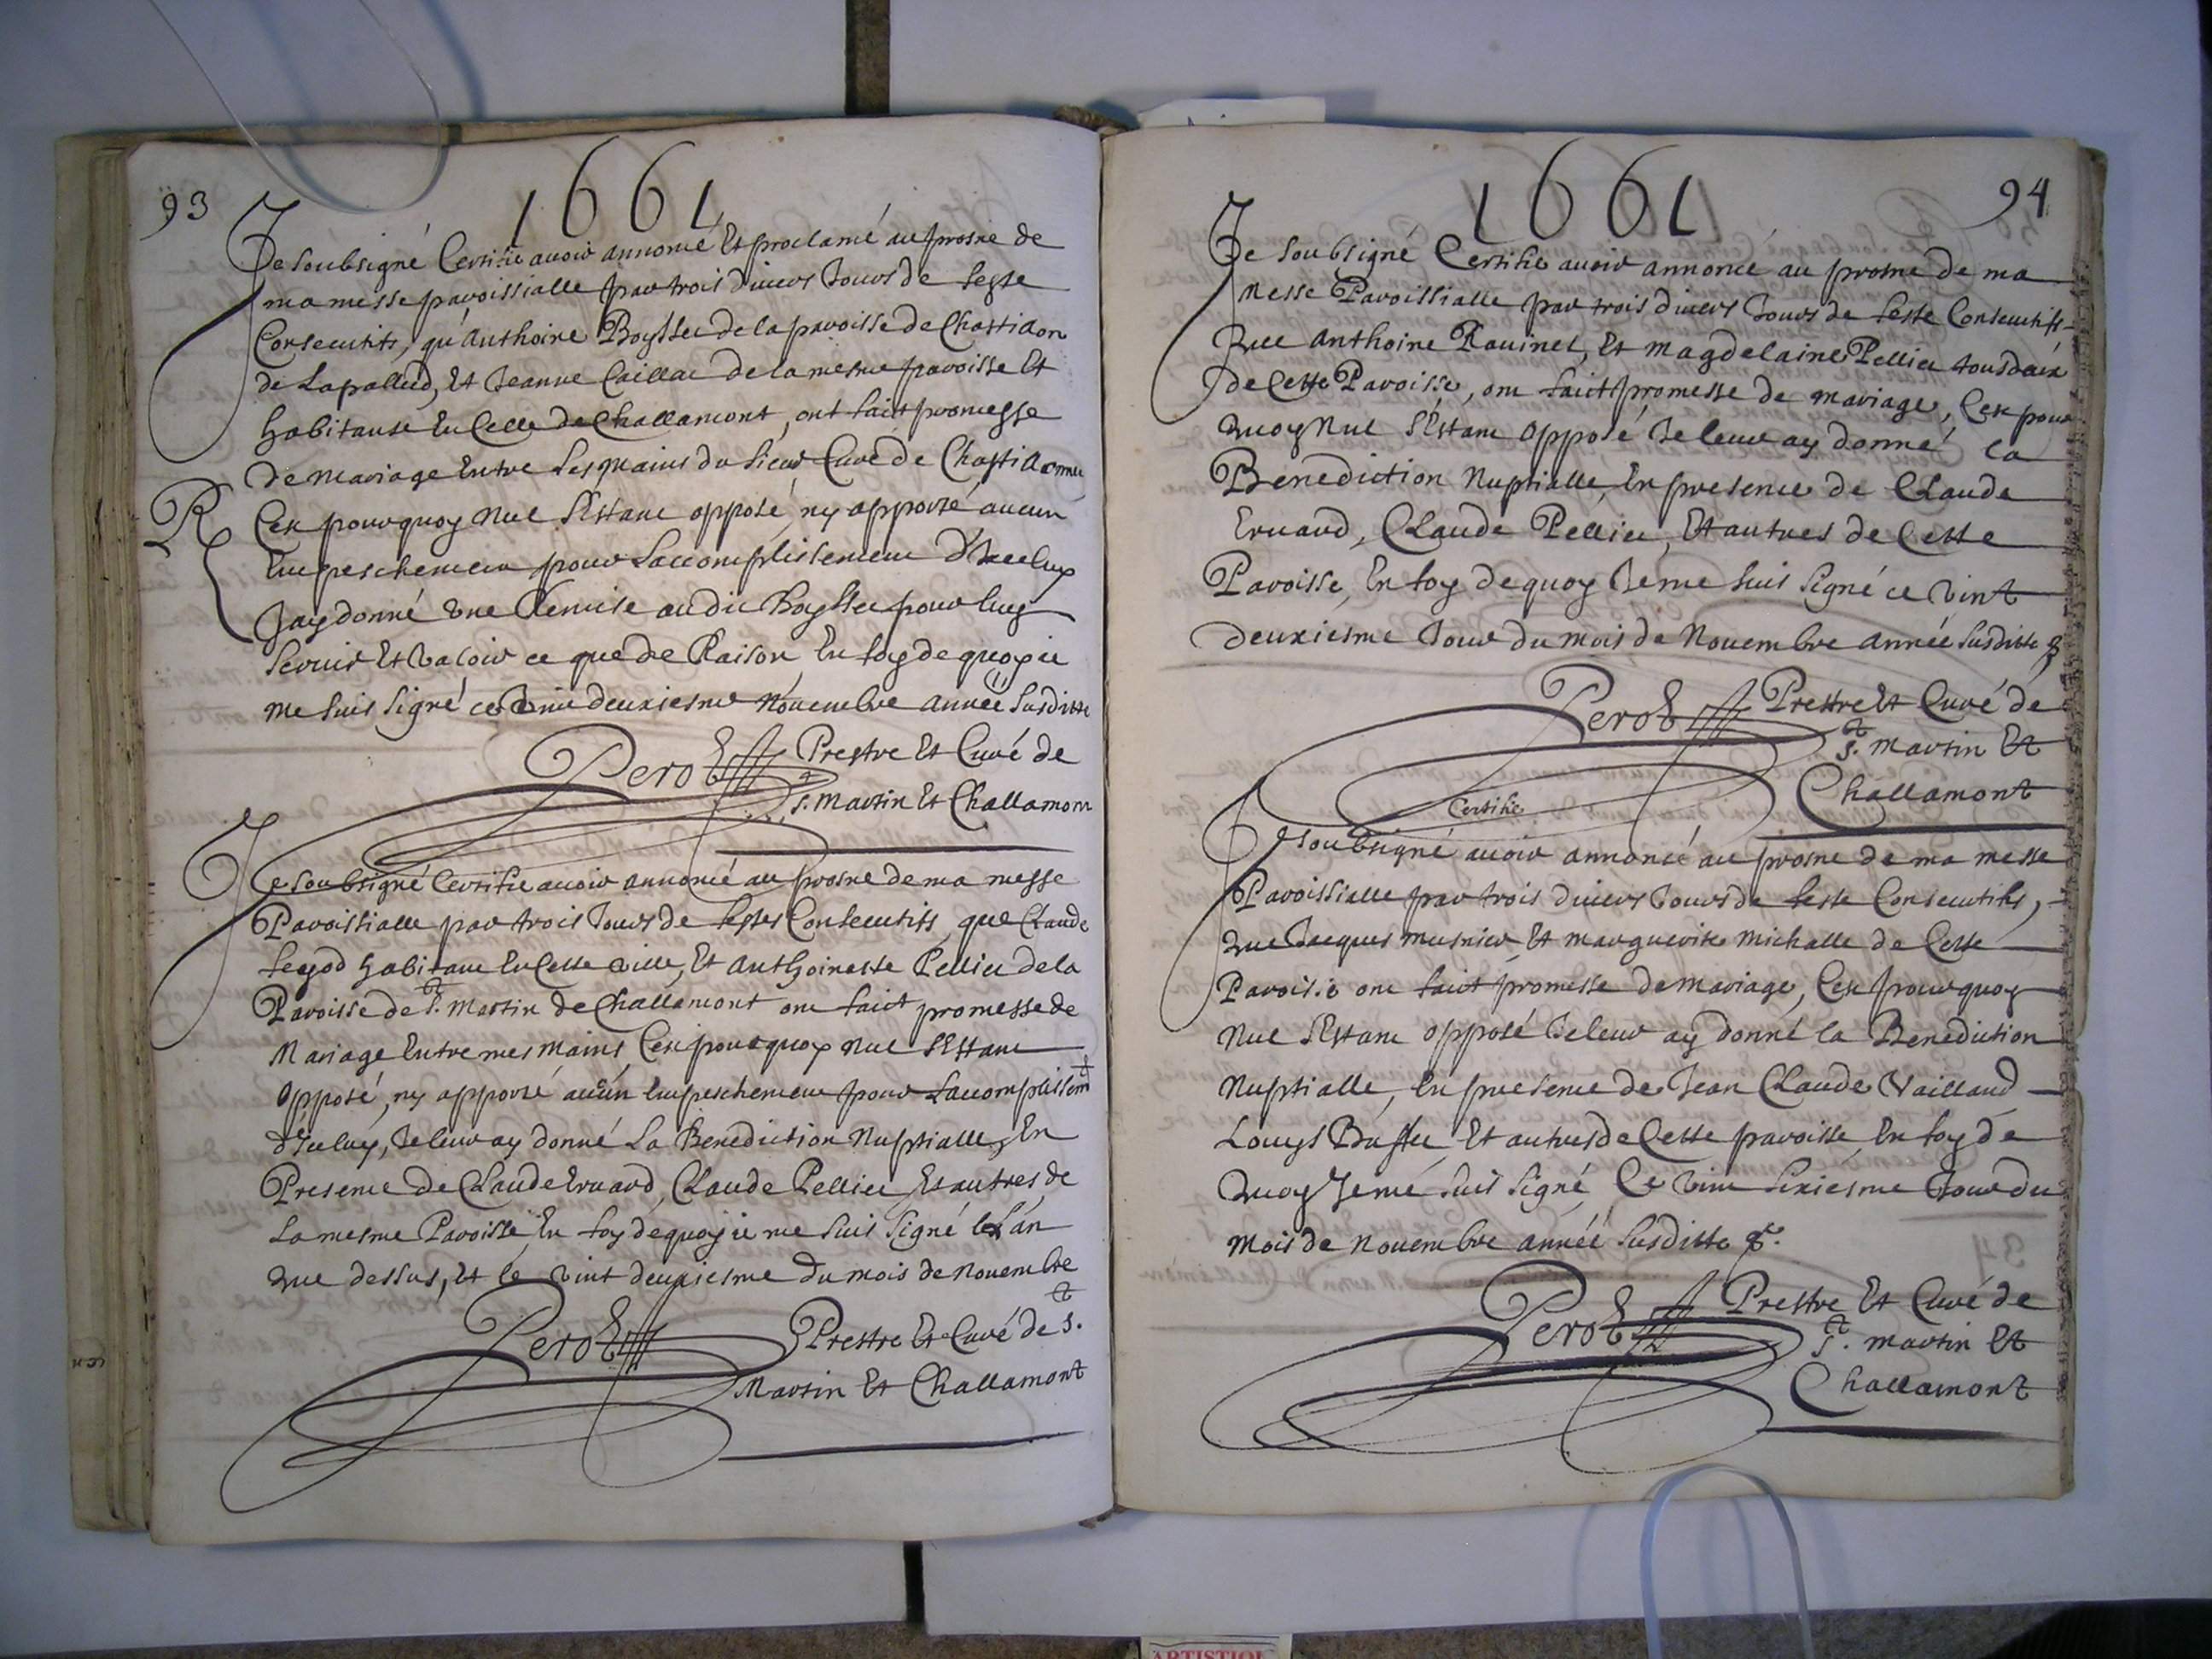 93
1661
Je soubsigné Certifie avoir annoncé Et proclamé au prosne de
ma messe paroissialle par trois divers Jours de feste
Consecutifs, qu'Anthoine Boyssee de la paroisse de Chastillon
de Lapallud, Et Jeanne Caillat de la mesme paroisse Et
habitante En Celle de Challamont, ont faict promesse
de Mariage Entre Les Mains du Sieur Curé de Chastillonne
R
C'est pourquoy Nul S'Estant opposé, ny apporté aucun
Empeschement pour Laccomplissement d'Iceluy
Jay donné Une Remise au dit Boyssee pour luy
Servir Et Valoir ce que de Raison En foy de quoy ie
me suis Signé ce Vint deuxiesme Novembre année Susditte
Perot Prestre Et Curé de
St. Martin Et Challamont
Je soubsigné Certifie avoir annoncé au prosne de ma messe
Paroissialle par trois Jours de festes Consecutifs, que Claude
habitant En Cette ville, Et Anthoinette Pellier de la
Paroisse de St. Martin de Challamont ont faict promesse de
Mariage Entre mes mains C'est pourquoy Nul S'Estant
Opposé, ny apporté aucun Empeschement pour Laccomplissemt
d'Iceluy, Je leur ay donné La Benediction Nuptialle, En
Presence de Claude Evrard, Claude Pellier, Et autres de
La mesme Paroisse, En foy de quoy ie me suis Signé L'an
que dessus, Et le Vint deuxiesme du mois de Novembre
Perot Prestre Et Curé de St.
Martin Et Challamont
94
1661
Je soubsigné Certifie avoir annoncé au prosne de ma
Messe Paroissialle par trois divers Jours de feste Consecutifs
Que Anthoine Ravinet, Et Magdelaine Pellier tous deux
de Cette Paroisse, ont faict promesse de mariage, C'est pour
Quoy Nul S'Estant Opposé Je leur ay donné la
Benediction Nuptialle, En presence de Claude
Evrard, Claude Pellier, Et autres de Cette
Paroisse, En foy de quoy Je me suis Signé ce Vint
deuxiesme Jour du mois de Novembre Année Susditte
Perot Prestre Et Curé de
St. Martin Et
Challamont
Certifie
Je soubsigné avoir annoncé au prosne de ma messe
Paroissialle par trois divers Jours de feste Consecutifs,
Que Jacques Musnier Et Marguerite Michalle de Cette
Paroisse ont faict promesse de Mariage, C'est pourquoy
Nul S'Estant Opposé Je leur ay donné la Benediction
Nuptialle, En presence de Jean Claude Vailland
Louys Et autres de Cette paroisse, En foy de
Quoy Je me suis Signé, Ce Vint Sixiesme Jour du
Mois de Novembre année Susditte &.
Perot Prestre Et Curé de
St. Martin Et
Challamont